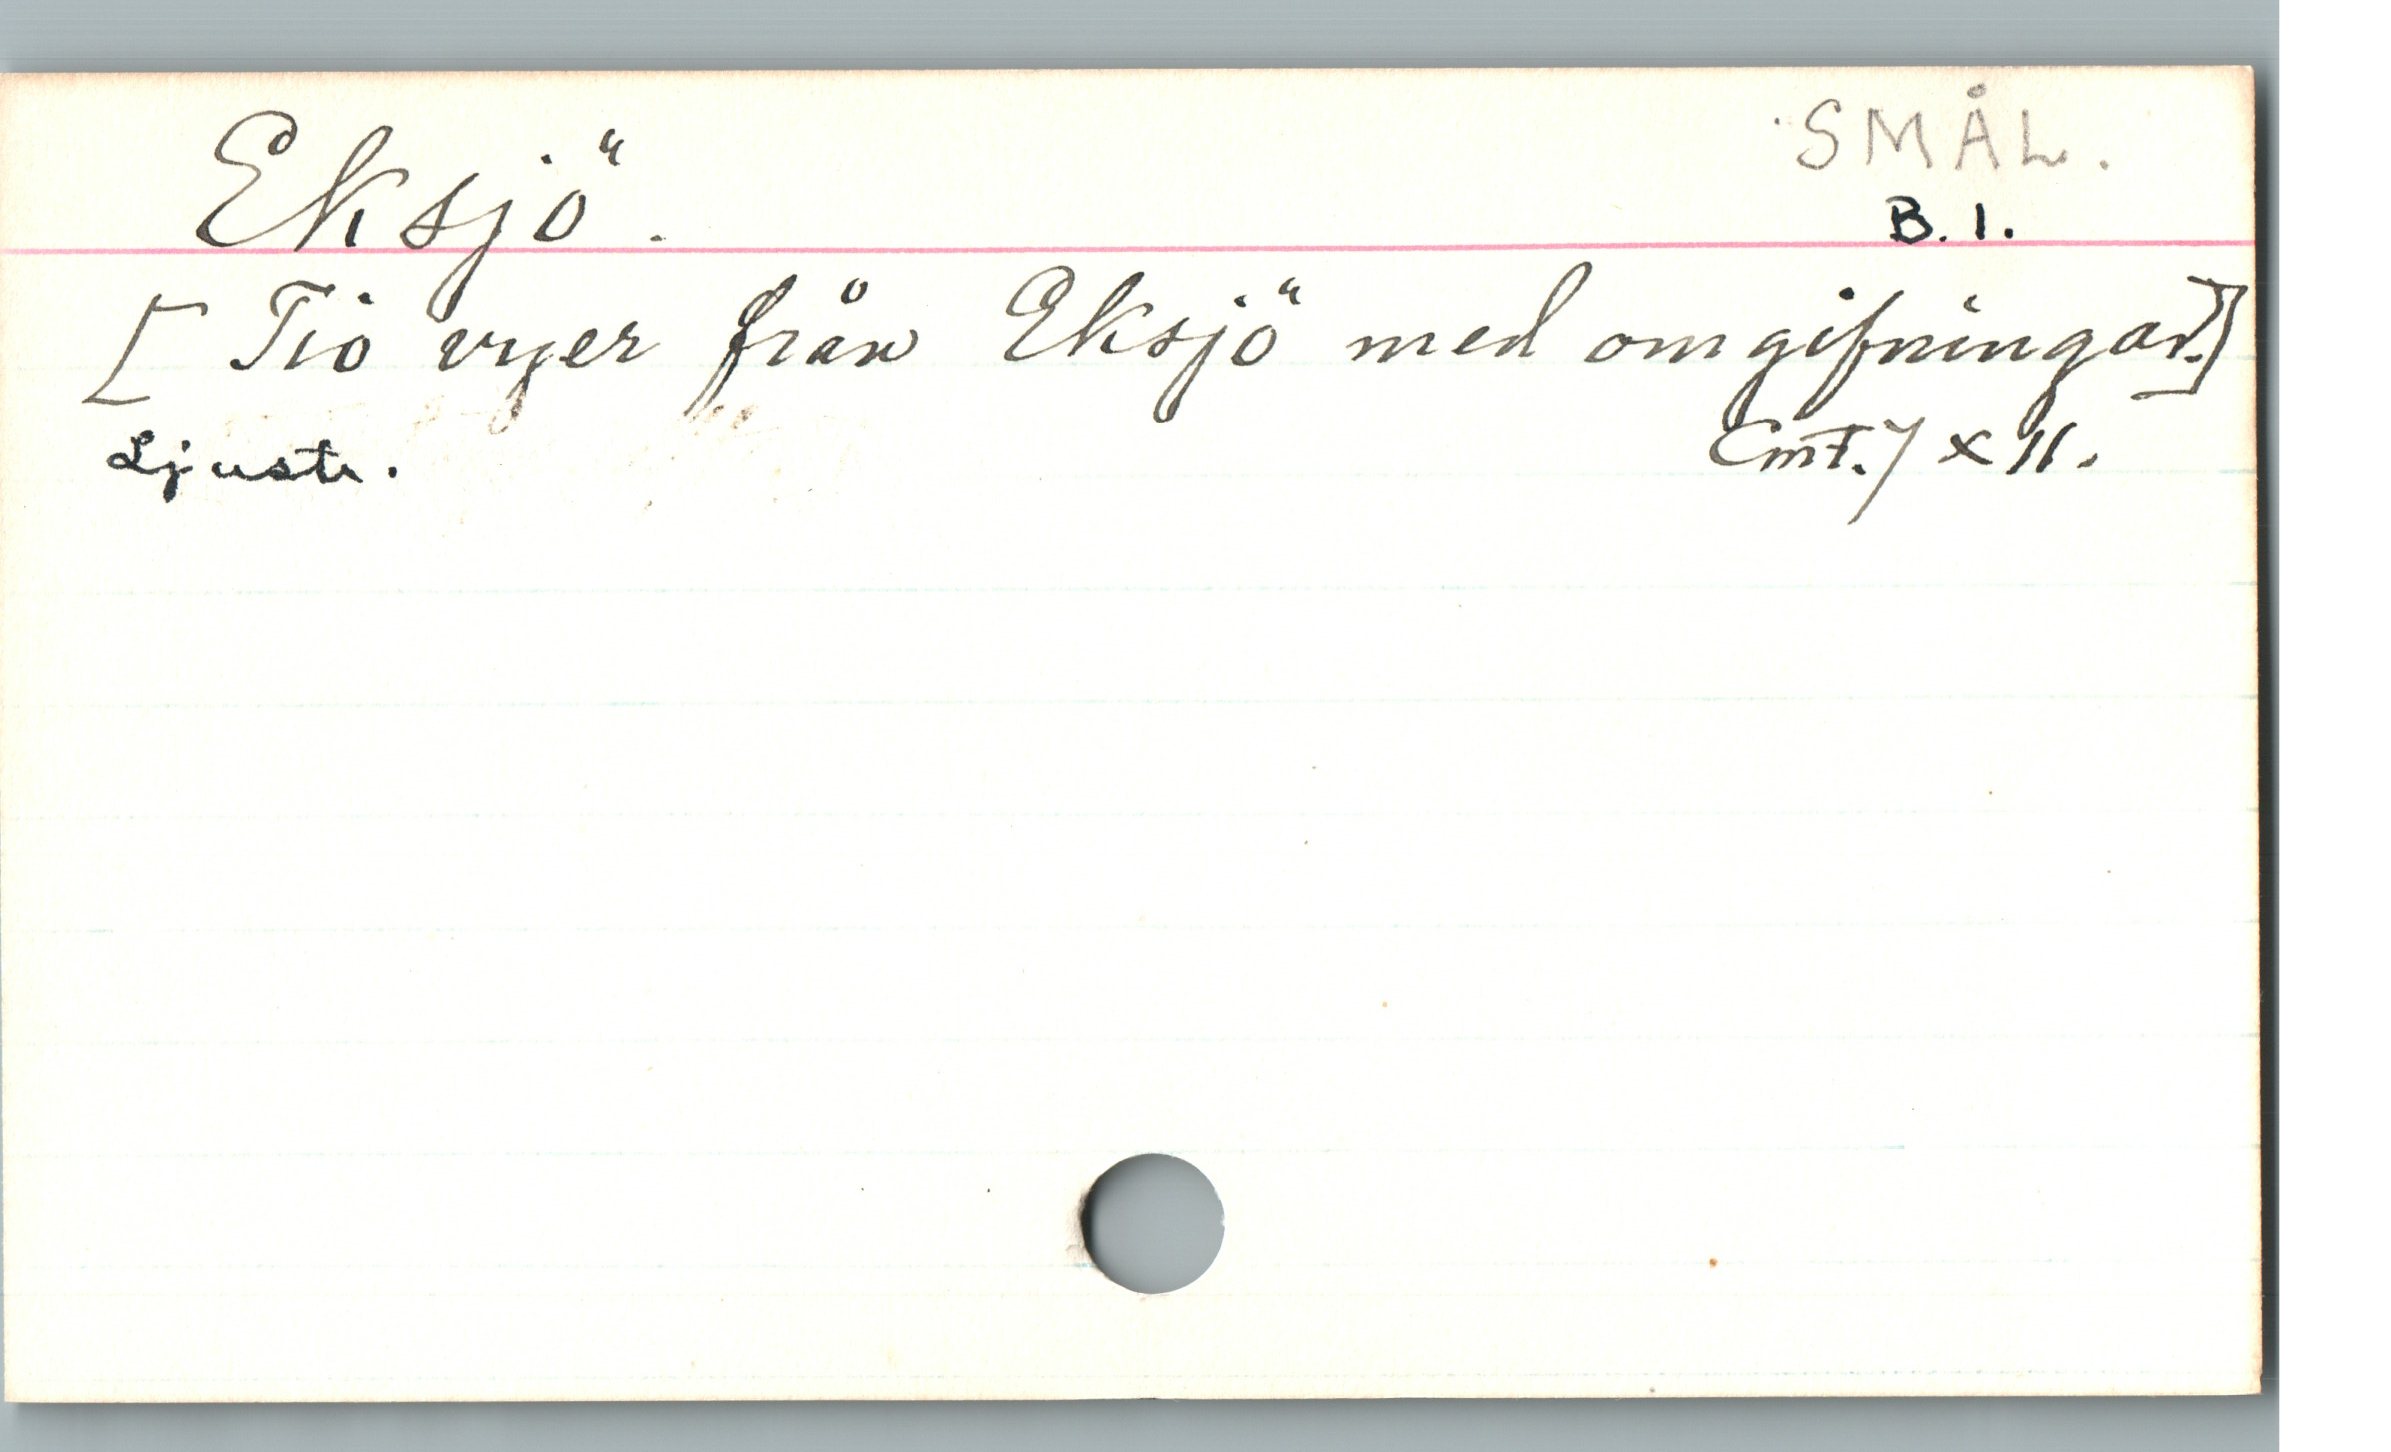 SMÅL.
Eksjö.
B. 1.
[Tio vyer från Eksjö med omgifningar.]
Ljustr.
Cmt. 7 x 11.